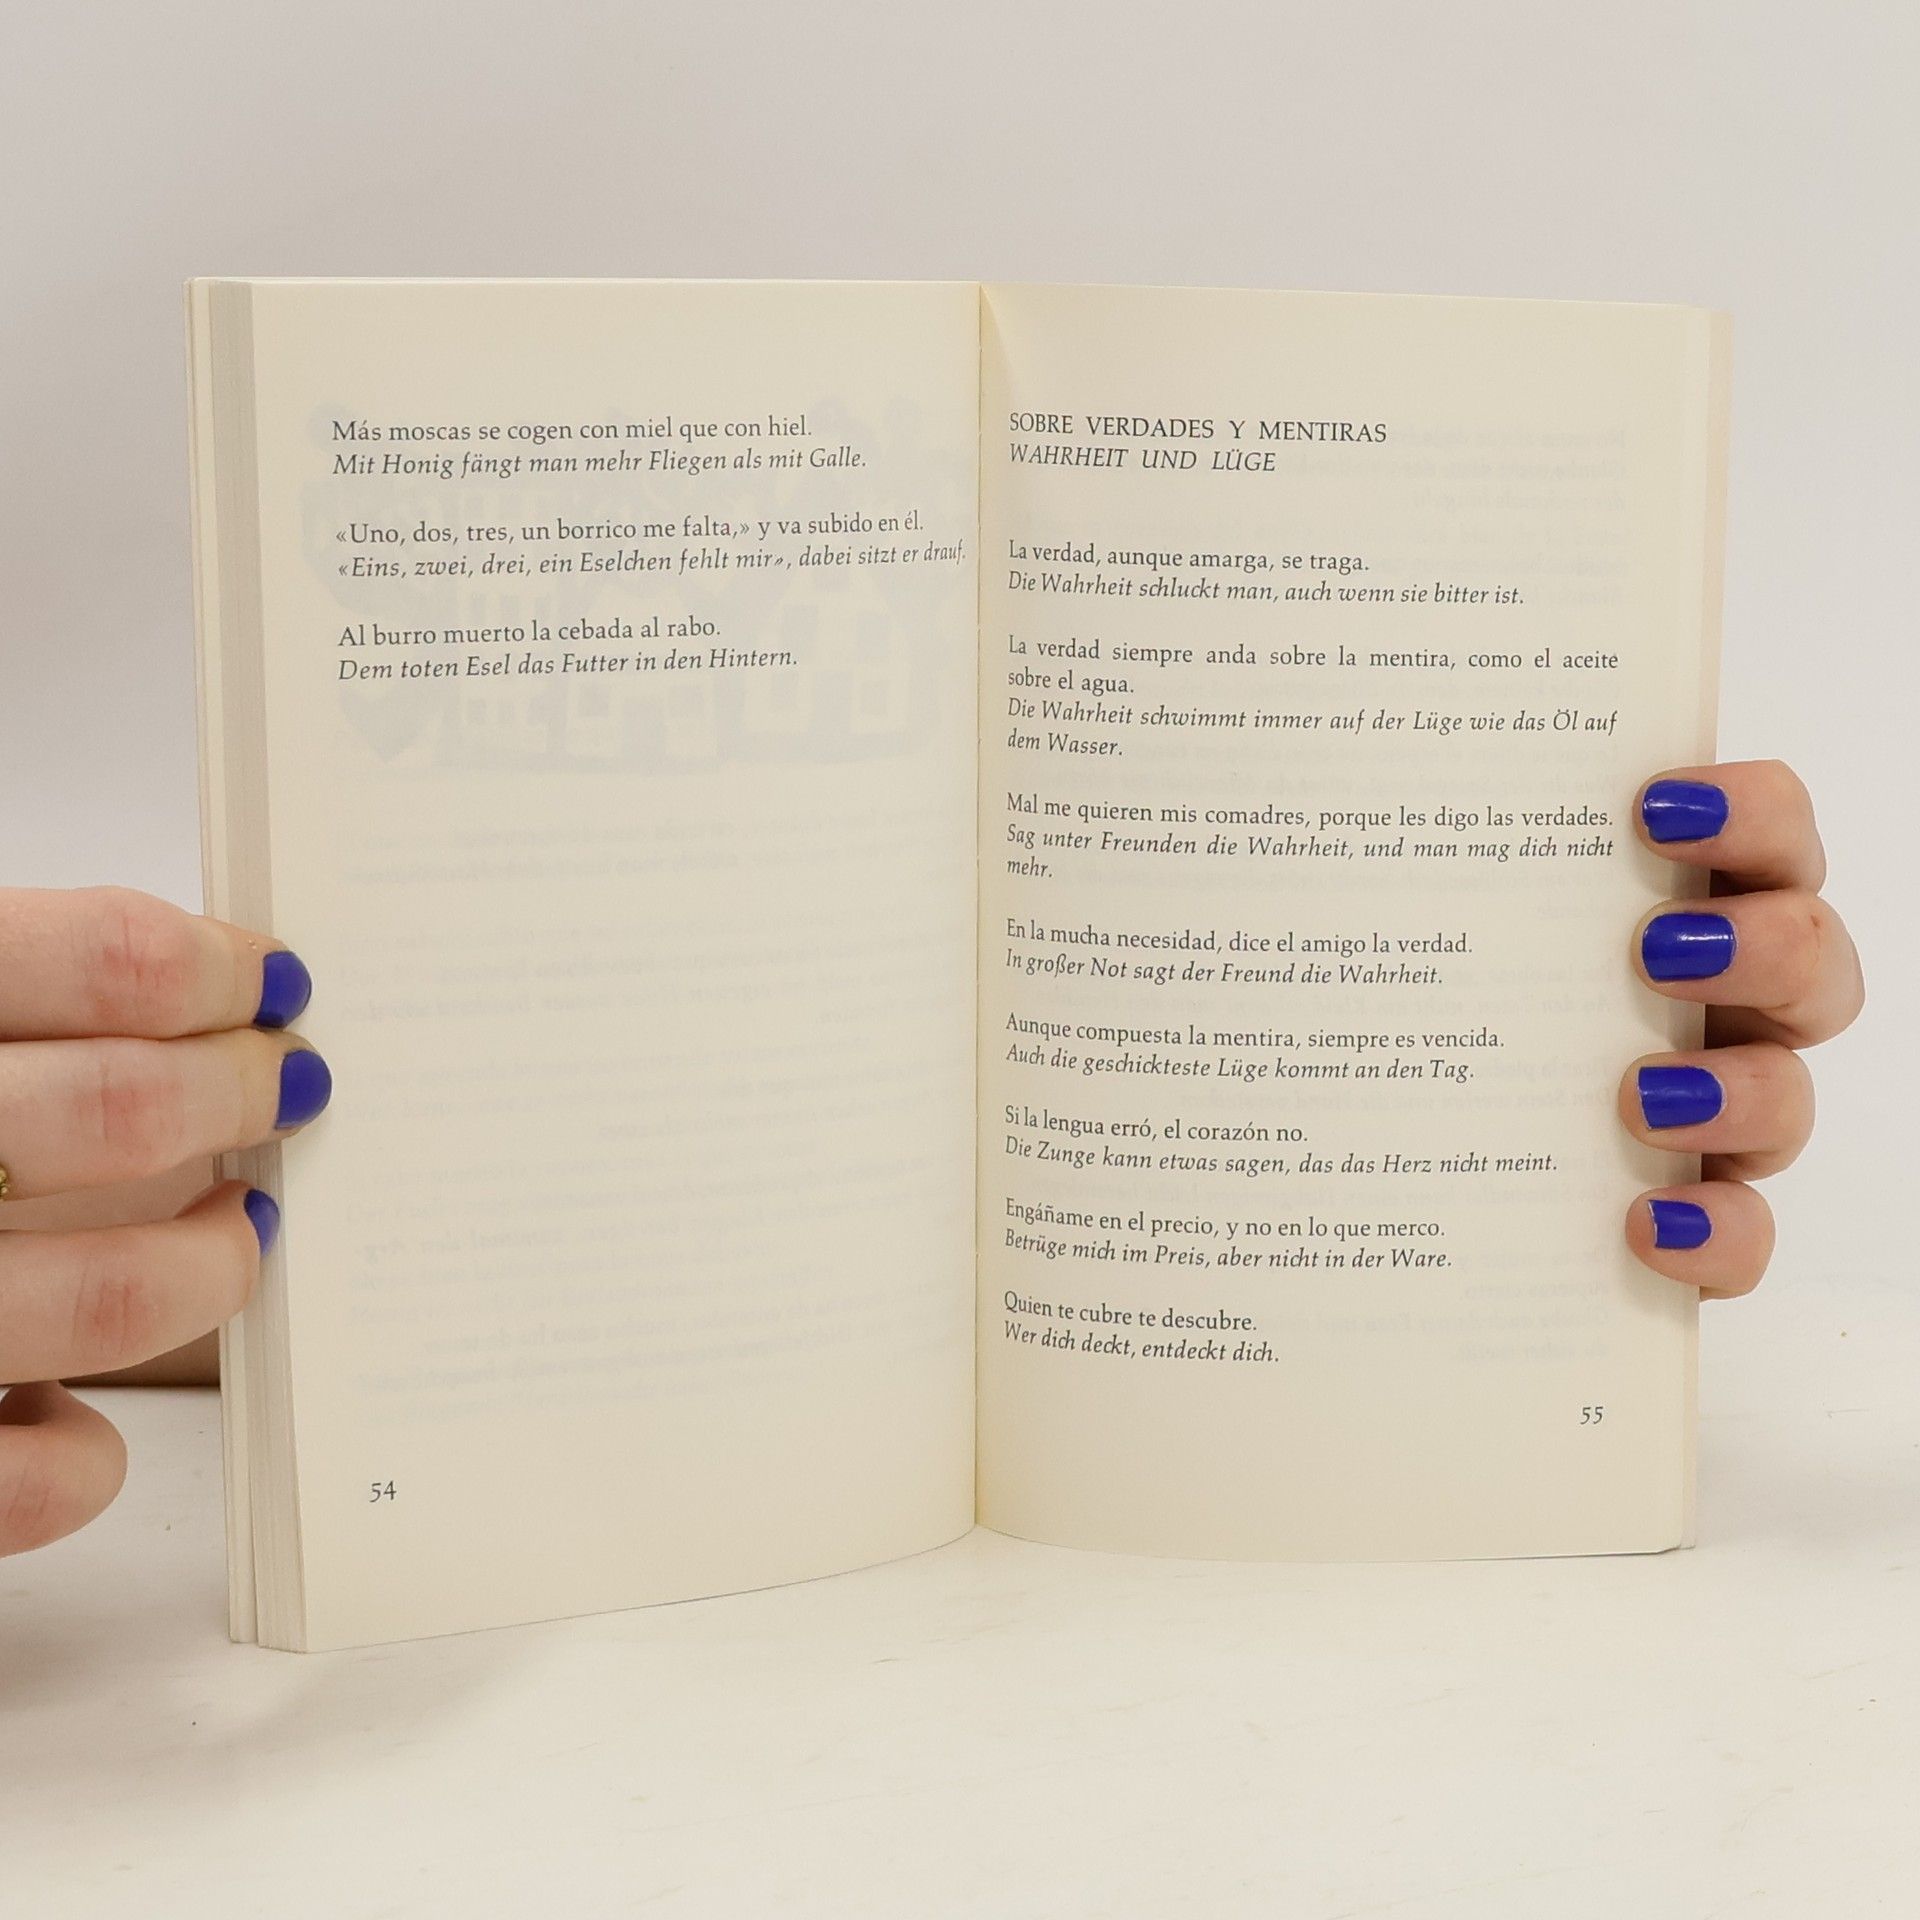 Más moscas se cogen con miel que con hiel.
Mit Honig fängt man mehr Fliegen als mit Galle.
«Uno, dos, tres, un borrico me falta,» y va subido en él.
«Eins, zwei, drei, ein Eselchen fehlt mir», dabei sitzt er drauf.
Al burro muerto la cebada al rabo.
Dem toten Esel das Futter in den Hintern.
54
SOBRE VERDADES Y MENTIRAS
WAHRHEIT UND LÜGE
La verdad, aunque amarga, se traga.
Die Wahrheit schluckt man, auch wenn sie bitter ist.
La verdad siempre anda sobre la mentira, como el aceite
sobre el agua.
Die Wahrheit schwimmt immer auf der Lüge wie das Öl auf
dem Wasser.
Mal me quieren mis comadres, porque les digo las verdades.
Sag unter Freunden die Wahrheit, und man mag dich nicht
mehr.
En la mucha necesidad, dice el amigo la verdad.
In großer Not sagt der Freund die Wahrheit.
Aunque compuesta la mentira, siempre es vencida.
Auch die geschickteste Lüge kommt an den Tag.
Si la lengua erró, el corazón no.
Die Zunge kann etwas sagen, das das Herz nicht meint.
Engáñame en el precio, y no en lo que merco.
Betrüge mich im Preis, aber nicht in der Ware.
Quien te cubre te descubre.
Wer dich deckt, entdeckt dich.
55